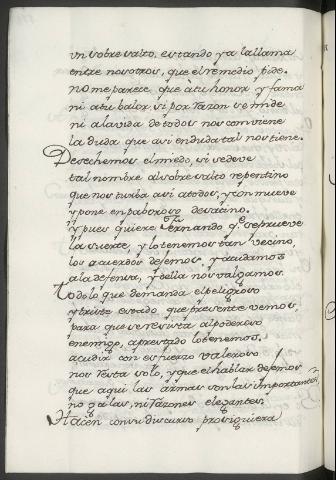 un sobresalto, estando ya la llama
entre nosotros, que el remedio pide.
no me parece que à tu honor y fama
ni a tu balor, si por razon se mide
ni a la vida de todos nos conviene
la duda que asi en duda tal nos tiene.
Desechemos el miedo, si se deve
tal nombre al sobresalto repentino
que nos turba asi a todos, y conmueve
y pone en paboroso desatino.
y pues quiere Fernando qᵉ se prueve
la suerte, y lo tenemos tan vecino,
los acuerdos dejemos, y acudamos
a la defensa, y della nos valgamos.
Todo lo que demanda el peligroso
y triste estado, que presente vemos,
para que se resista al poderoso
enemigo, aprestado lo tenemos.
acudir con esfuerzo valeroso
nos resta solo, y que el hablar dejemos
que aqui las armas son las importantes,
no galas, ni razones elegantes.
Hacen con su discurso prosiguiera